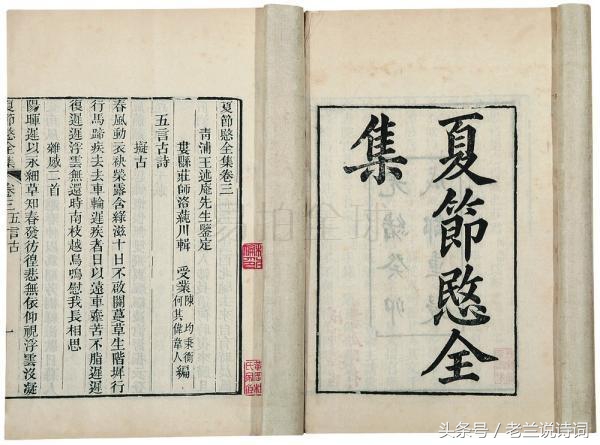 夏節愍全
集
夏節愍全集卷三
青浦王述庵先生鑒定
婁縣莊師洛蓴川輯 受業 陳均秉衡 何其偉韋人 編
五言古詩
擬古
春風動衣袂榮露含綠滋十日不啟關蔓草生階墀行
行馬蹄疾去去車輪遲疾者日以遠車舝苦不脂遲遲
復遲遲浮雲無還時南枝越鳥鳴慰我長相思
雜感二首
陽暉遲以永細草知春發彷徨悲無依仰視浮雲沒凝
夏節愍全集 卷三五言古 一
头条号 / 老兰说诗词